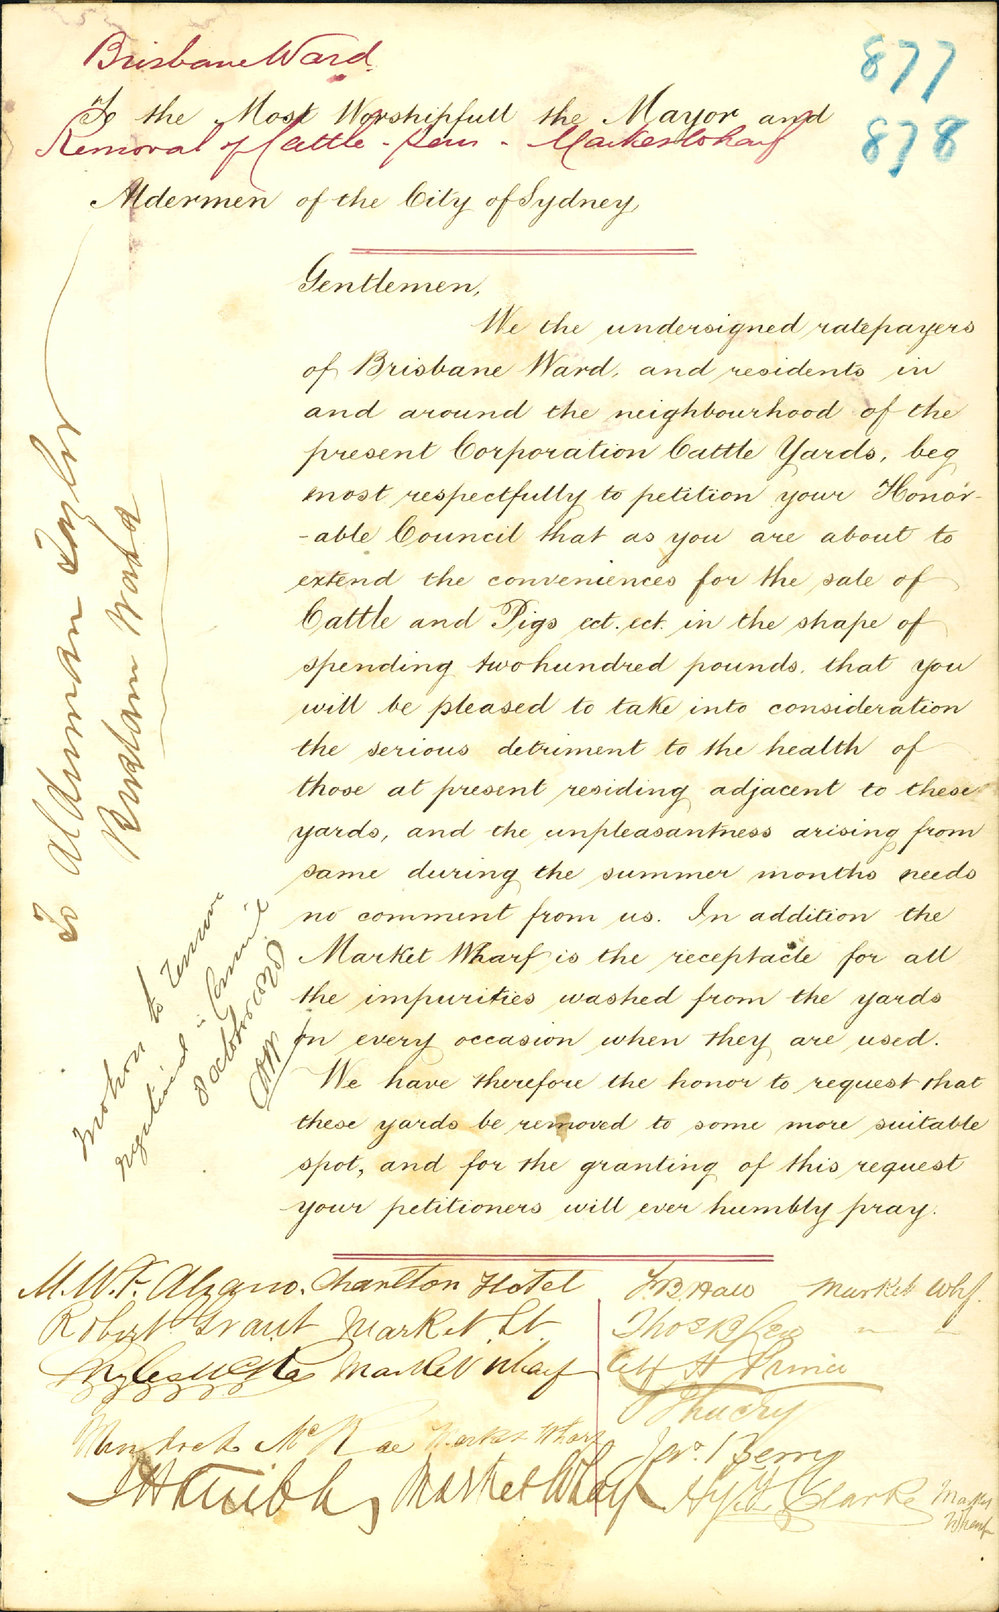 Brisbane Ward.
877
878
To the Most Worshipfull the Mayor and
Removal of Cattle - Market Wharf
Aldermen of the City of Sydney,
Gentlemen,
We the undersigned ratepayers
of Brisbane Ward, and residents in
and around the neighbourhood of the
present Corporation Cattle Yards, beg
most respectfully to petition your Honor-
-able Council that as you are about to
extend the conveniences for the sale of
Cattle and Pigs ect. ect. in the shape of
spending two hundred pounds, that you
will be pleased to take into consideration
the serious detriment to the health of
those at present residing adjacent to these
yards, and the unpleasantness arising from
same during the summer months needs
no comment from us. In addition the
Market Wharf is the receptacle for all
the impurities washed from the yards
on every occasion when they are used.
We have therefore the honor to request that
these yards be removed to some more suitable
spot, and for the granting of this request
your petitioners will ever humbly pray.
To Alderman Taylor
Brisbane Ward
Motion to remove
negatived in Council
8 October
M. W. F. Alzano. Charlton Hotel
Robert Grant Market St.
Market Wharf
McRae Market Wharf
Market Wharf
Market Whf.
Thos
H Prince
Jno. Berry
Hy Clarke Market
Wharf